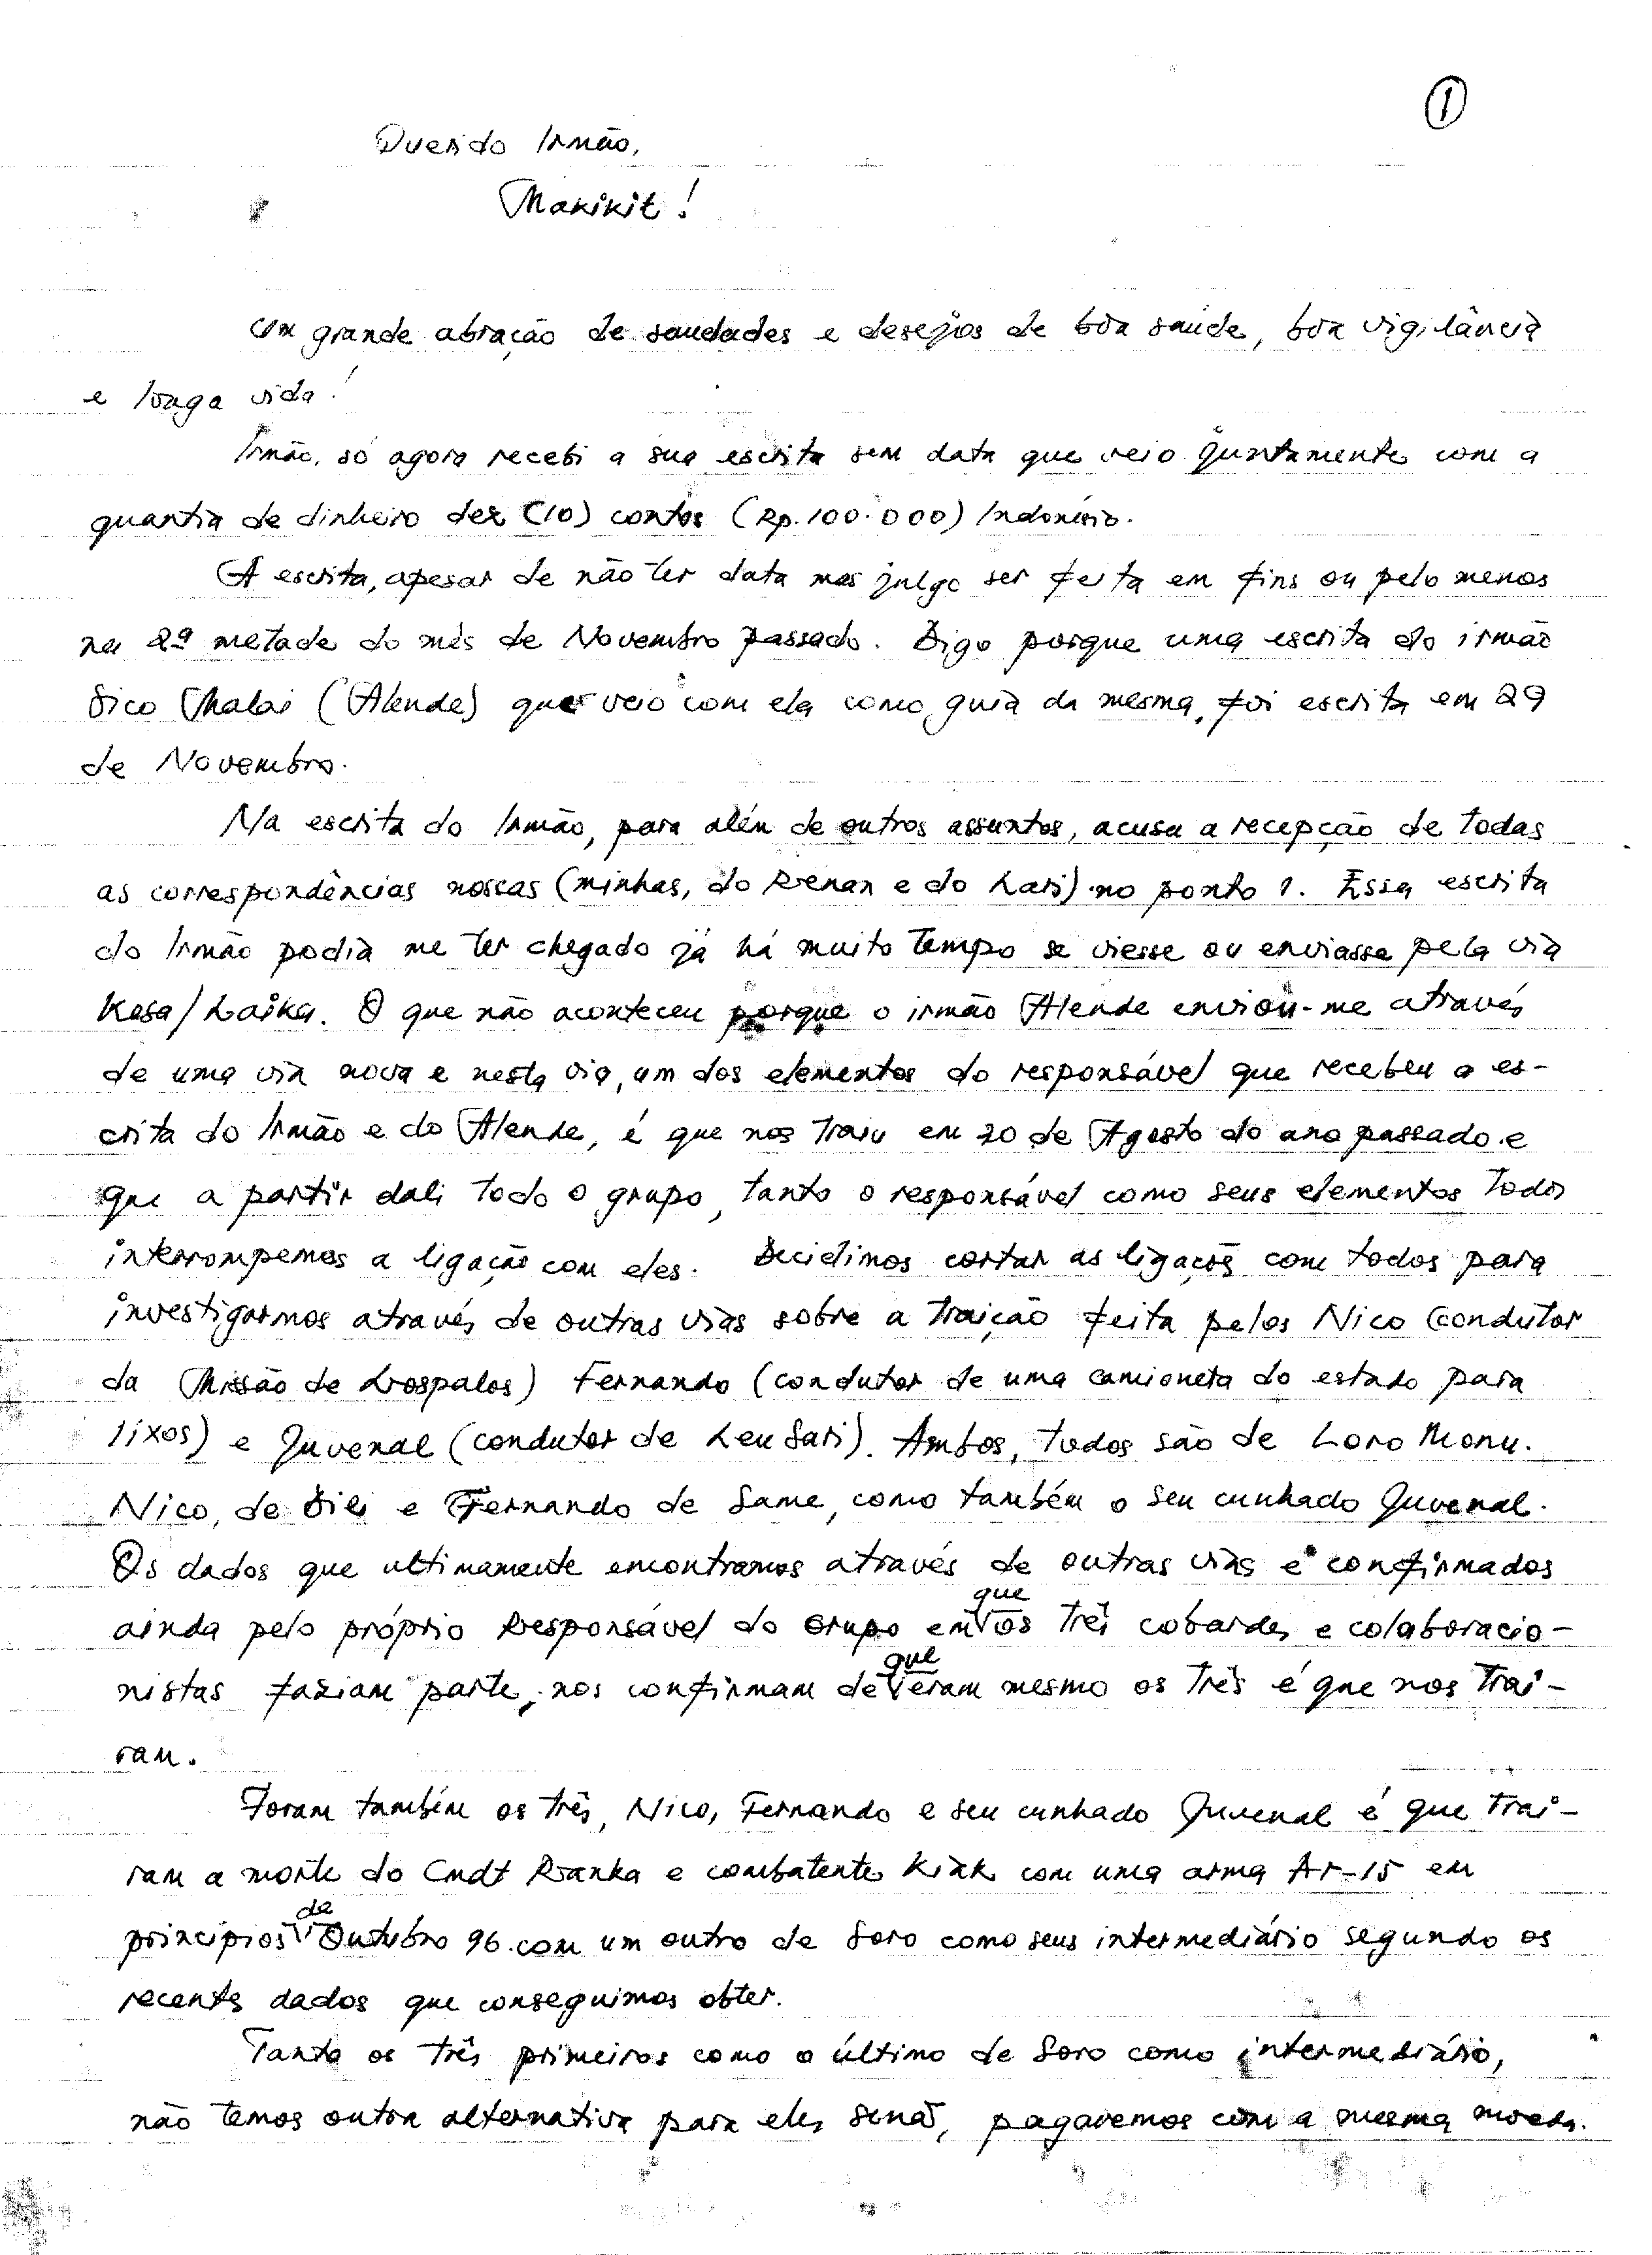 1
Querido Irmão,
Makikit!
Um grande abração de saudades e desejos de boa saúde, boa vigilância
e longa vida!
Irmão, só agora recebi a sua escrita sem data que veio juntamente com a
quantia de dinheiro dez (10) contos (Rp.100.000) Indonésio.
A escrita, apesar de não ter data mas julgo ser feita em fins ou pelo menos
na 2ª metade do mês de Novembro passado. Digo porque uma escrita do irmão
Sico Malai (Alende) que veio com ela como guia da mesma, foi escrita em 29
de Novembro.
Na escrita do Irmão, para além de outros assuntos, acusa a recepção de todas
as correspondências nossas (minhas, do Renan e do Lari) no ponto 1. Essa escrita
do Irmão podia me ter chegado já há muito tempo se viesse ou enviasse pela via
Kasa/Laika. O que não aconteceu porque o irmão Alende enviou-me através
de uma via nova e nesta via, um dos elementos do responsável que recebeu a es-
crita do Irmão e do Alende, é que nos traiu em 20 de Agosto do ano passado e
que a partir dali todo o grupo, tanto o responsável como seus elementos todos
interrompemos a ligação com eles. Decidimos cortar as ligaçõs com todos para
investigarmos através de outras vias sobre a traição feita pelos Nico (condutor
da Missão de Lospalos) Fernando (condutor de uma camioneta do estado para
lixos) e Juvenal (condutor de Leu Sari). Ambos, todos são de Loro Monu.
Nico, de Dili e Fernando de Same, como também o seu cunhado Juvenal.
Os dados que ultimamente encontramos através de outras vias e confirmados
ainda pelo próprio Responsável do Grupo em que os três cobardes e colaboracio-
nistas faziam parte, nos confirmam de que eram mesmo os três é que nos trai-
ram.
Foram também os três, Nico, Fernando e seu cunhado Juvenal é que trai-
ram a morte do Cmdt Ranka e combatente Kiak com uma arma Ar-15 em
princípios de Outubro 96 com um outro de Soro como seus intermediário segundo os
recentes dados que conseguimos obter.
Tanto os três primeiros como o último de Soro como intermediário,
não temos outra alternativa para eles senão, pagaremos com a mesma moeda.